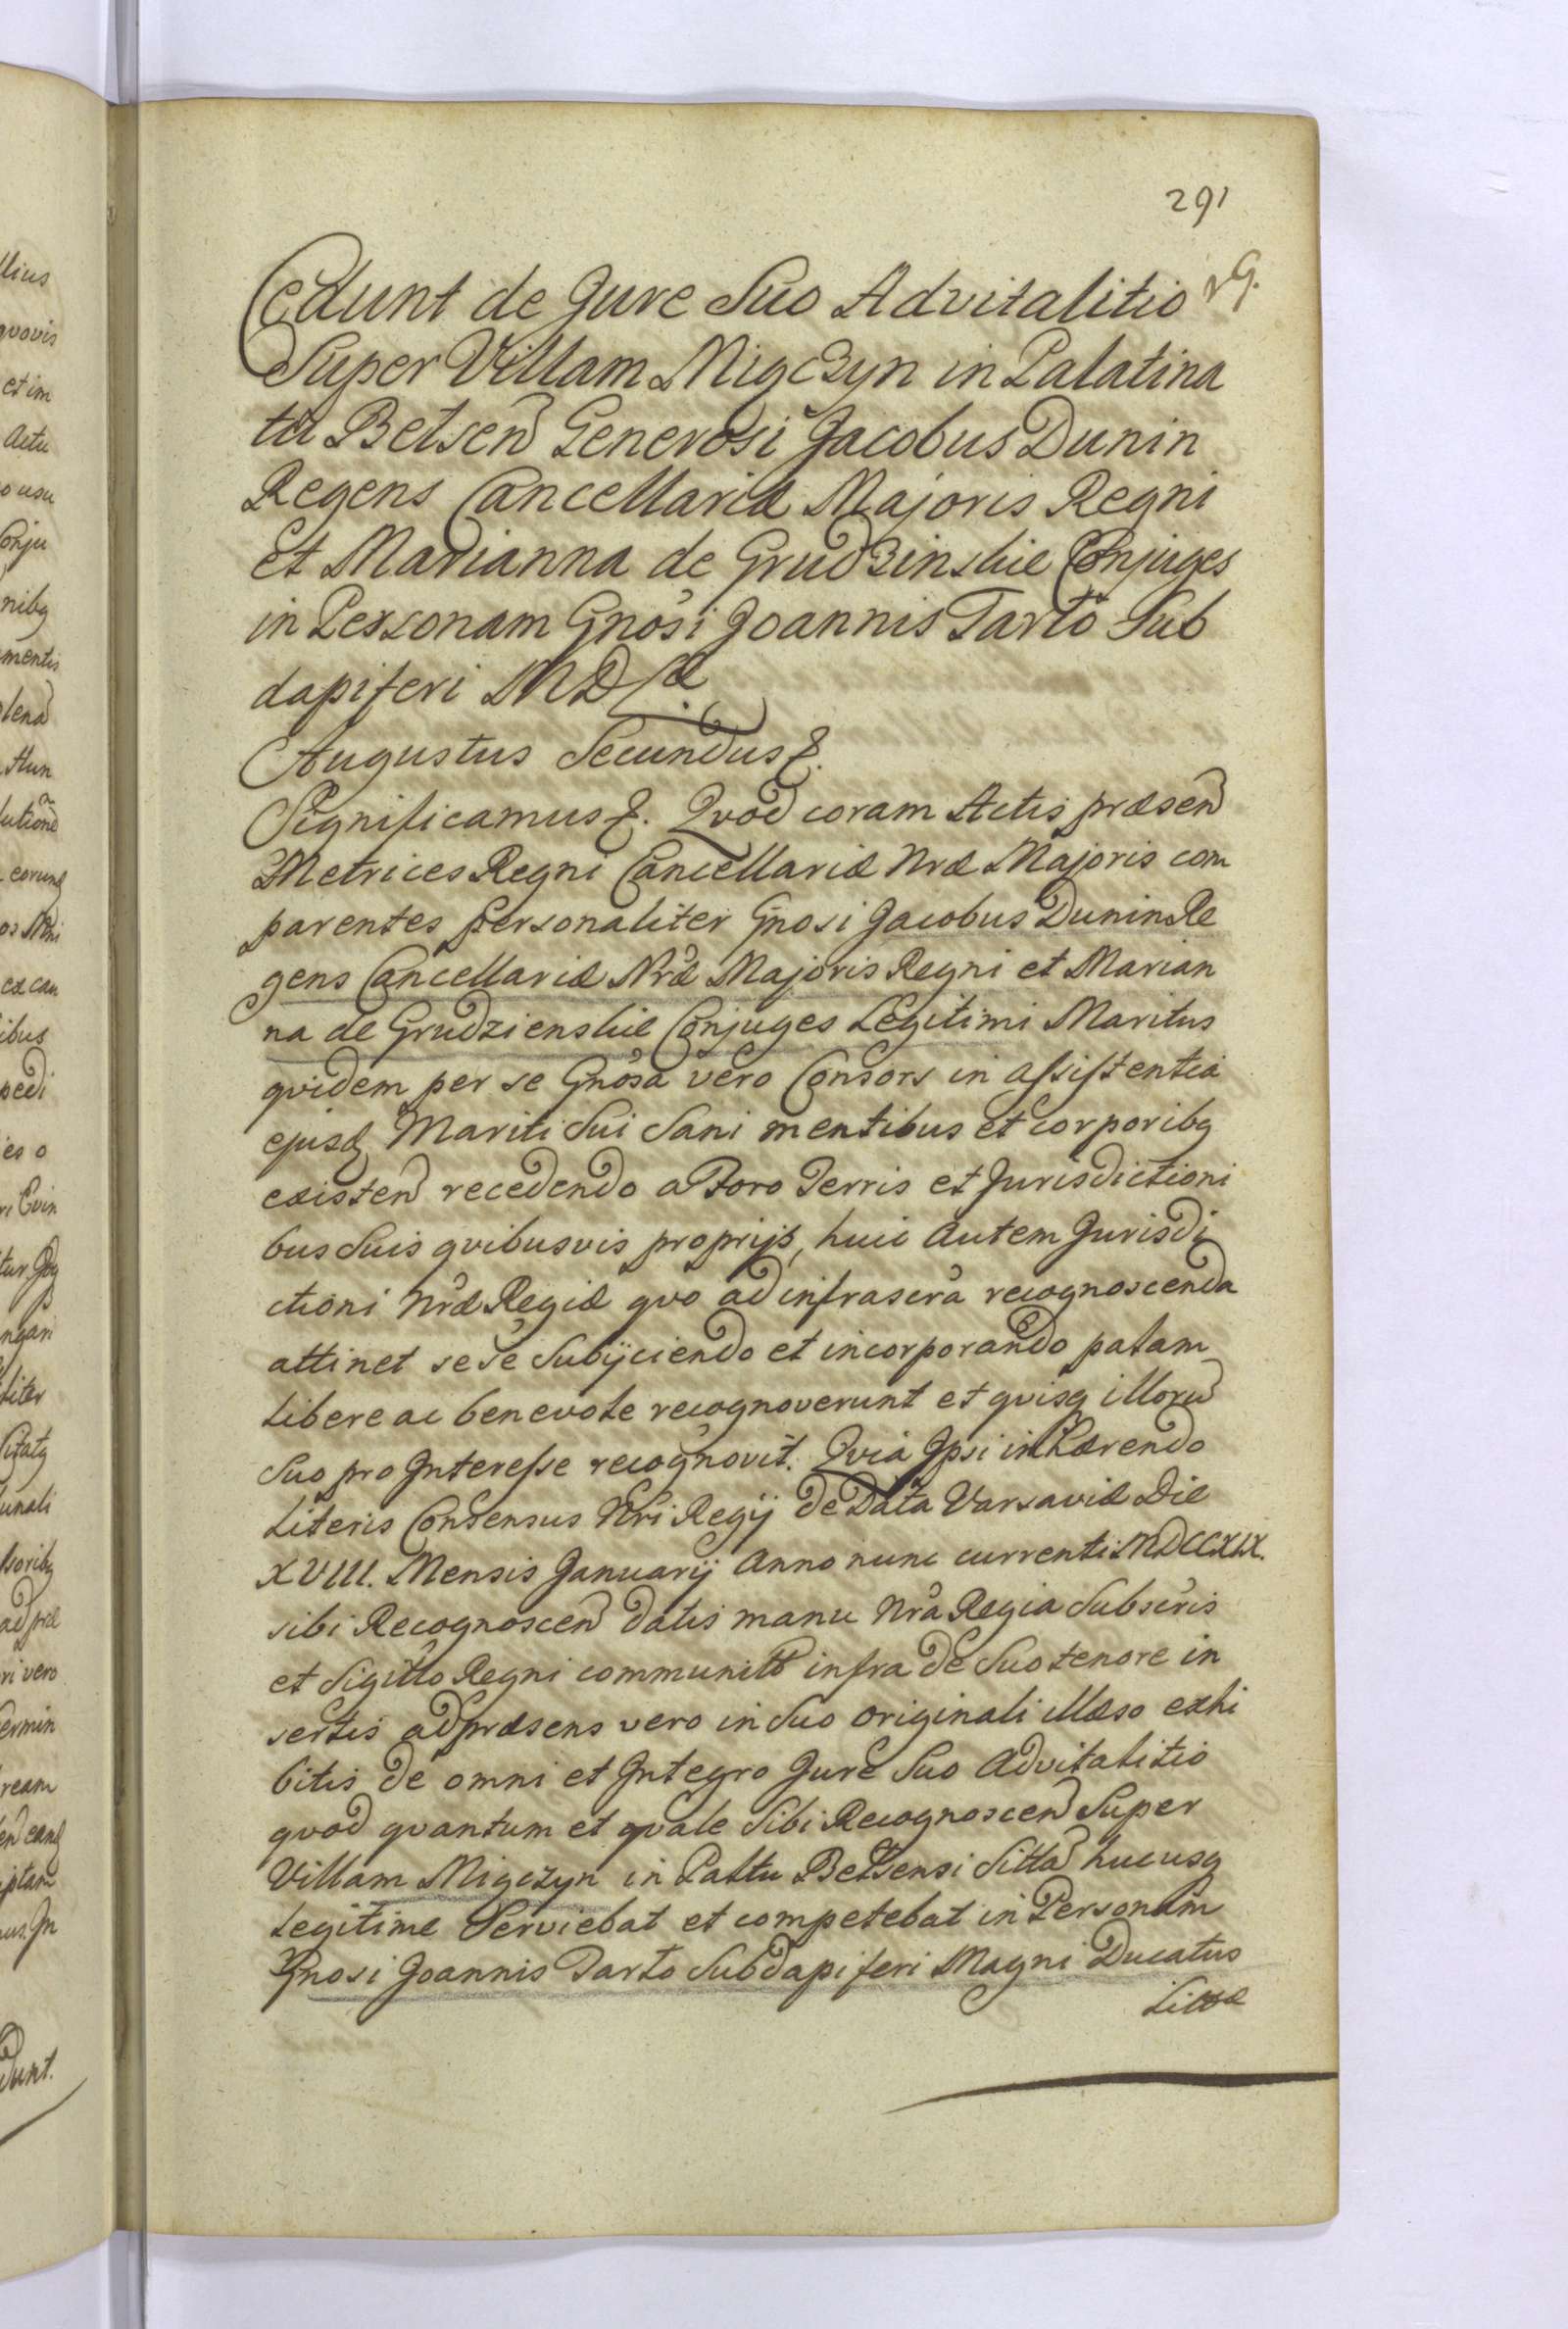 291
Cedunt de Jure Suo Advitalitio
Super Villam Miączyn in Palatina
tu Belsen Generosi Jacobus Dunin
Regens Cancellariæ Majoris Regni
et Marianna de Grudzinskie Conjuges
in Personam Gnosi Joannis Tarło Sub
dapiferi M D L
Augustus Secundus &.
Significamus &. Qvod coram Actis præsen
Metrices Regni Cancellariæ Nræ Majoris com
parentes personaliter Gnosi Jacobus Dunin Re
gens Cancellariæ Nræ Majoris Regni et Marian
na de Grudzienskie Conjuges Legitimi Maritus
qvidem per se Gnosa vero Consors in assistentia
ejusq Mariti Sui Sani mentibus et corporibq
existen recedendo a Foro Terris et Jurisdictioni
bus Suis qvibusvis proprijs, huic autem Jurisdi
ctioni Nræ Regiæ qvo ad infrascra recognoscenda
attinet sese Subijciendo et incorporando palam
libere ac benevole recognoverunt et qvisq illoru
Suo pro Interesse recognovit. Qvia Ipsi inhærendo
Literis Consensus Nri Regij de Data Varsaviæ Die
XVIII. Mensis Januarij Anno nunc currenti MDCCXIX.
sibi Recognoscen datis manu Nra Regia Subscris
et Sigillo Regni communitt infra de Suo tenore in
sertis ad præsens vero in Suo originali illæso exhi
bitis de omni et Integro Jure Suo Advitalitio
qvod qvantum et qvale Sibi Recognoscen Super
Villam Miączyn in Paltu Belsensi Sitta hucusq
legitime Serviebat et competebat in Personam
Gnosi Joannis Tarło Subdapiferi Magni Ducatus